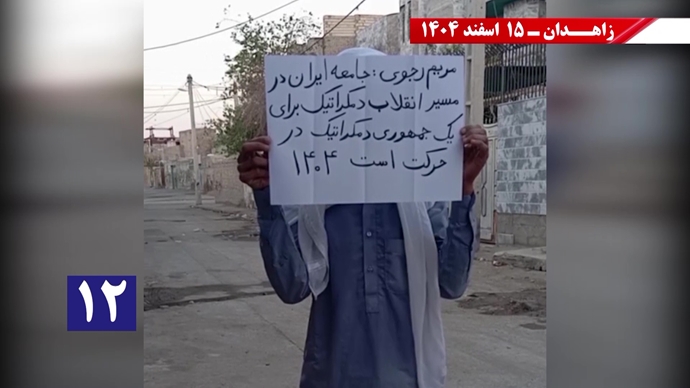 زاهـدان ـ ۱۵ اسفند ۱۴۰۴
مریم رجوی : جامعه ایران در
مسیر انقلاب دمکراتیک برای
یک جمهوری دمکراتیک در
حرکت است ۱۴۰۴
۱۲